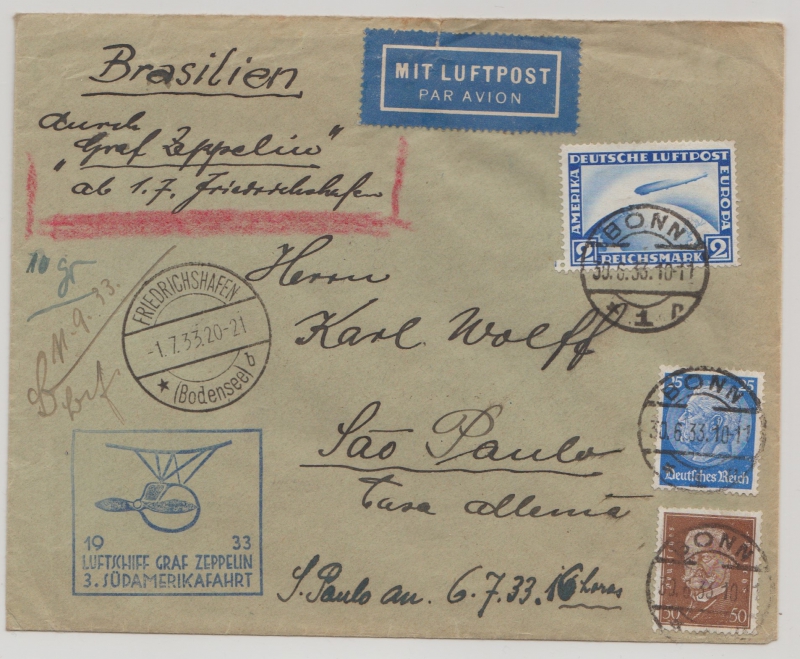 Brasilien
durch
„Graf Zeppelin"
ab 1.7. Friedrichshafen
MIT LUFTPOST
PAR AVION
DEUTSCHE LUFTPOST
AMERIKA
EUROPA
2 REICHSMARK 2
BONN
30.6.33.10-11
* 1
10 gr
11-9-33.
FRIEDRICHSHAFEN
-1.7.33.20-21
* (Bodensee) b
Herrn
Karl Wolff
São Paulo
Casa allemã
25 25
Deutsches Reich
BONN
30.6.33.10-11
19 33
LUFTSCHIFF GRAF ZEPPELIN
3. SÜDAMERIKAFAHRT
S. Paulo an. 6.7.33. 16 horas
BONN
50 50